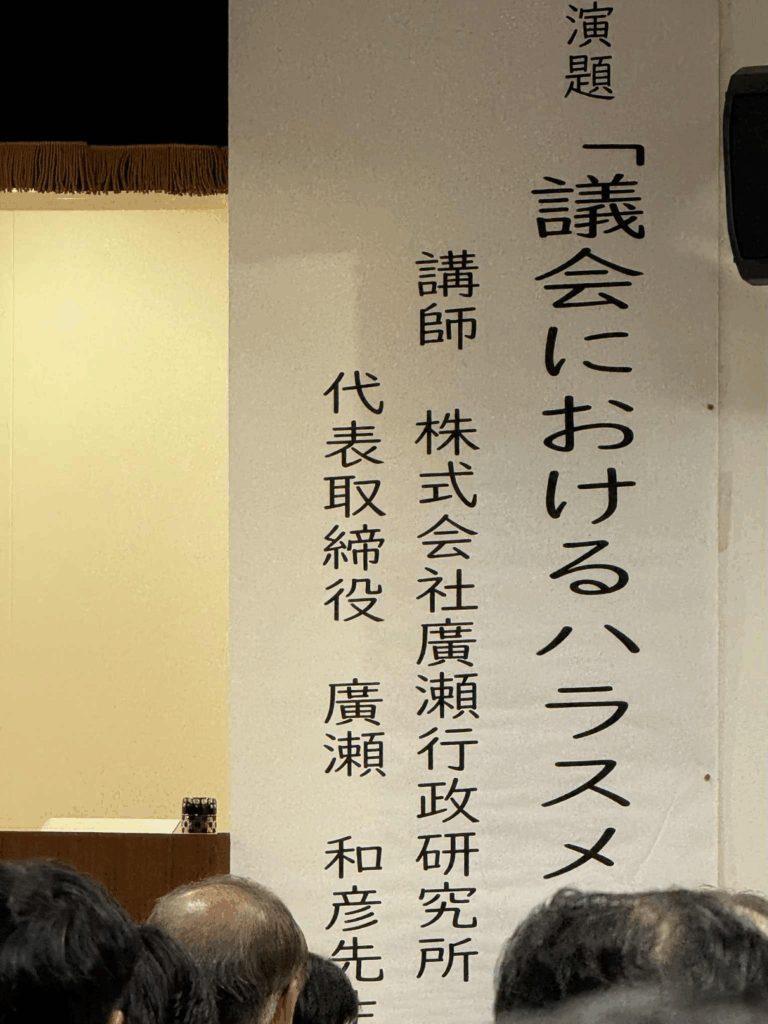 演題 「議会におけるハラスメ
講師 株式会社廣瀬行政研究所
代表取締役 廣瀬 和彦先